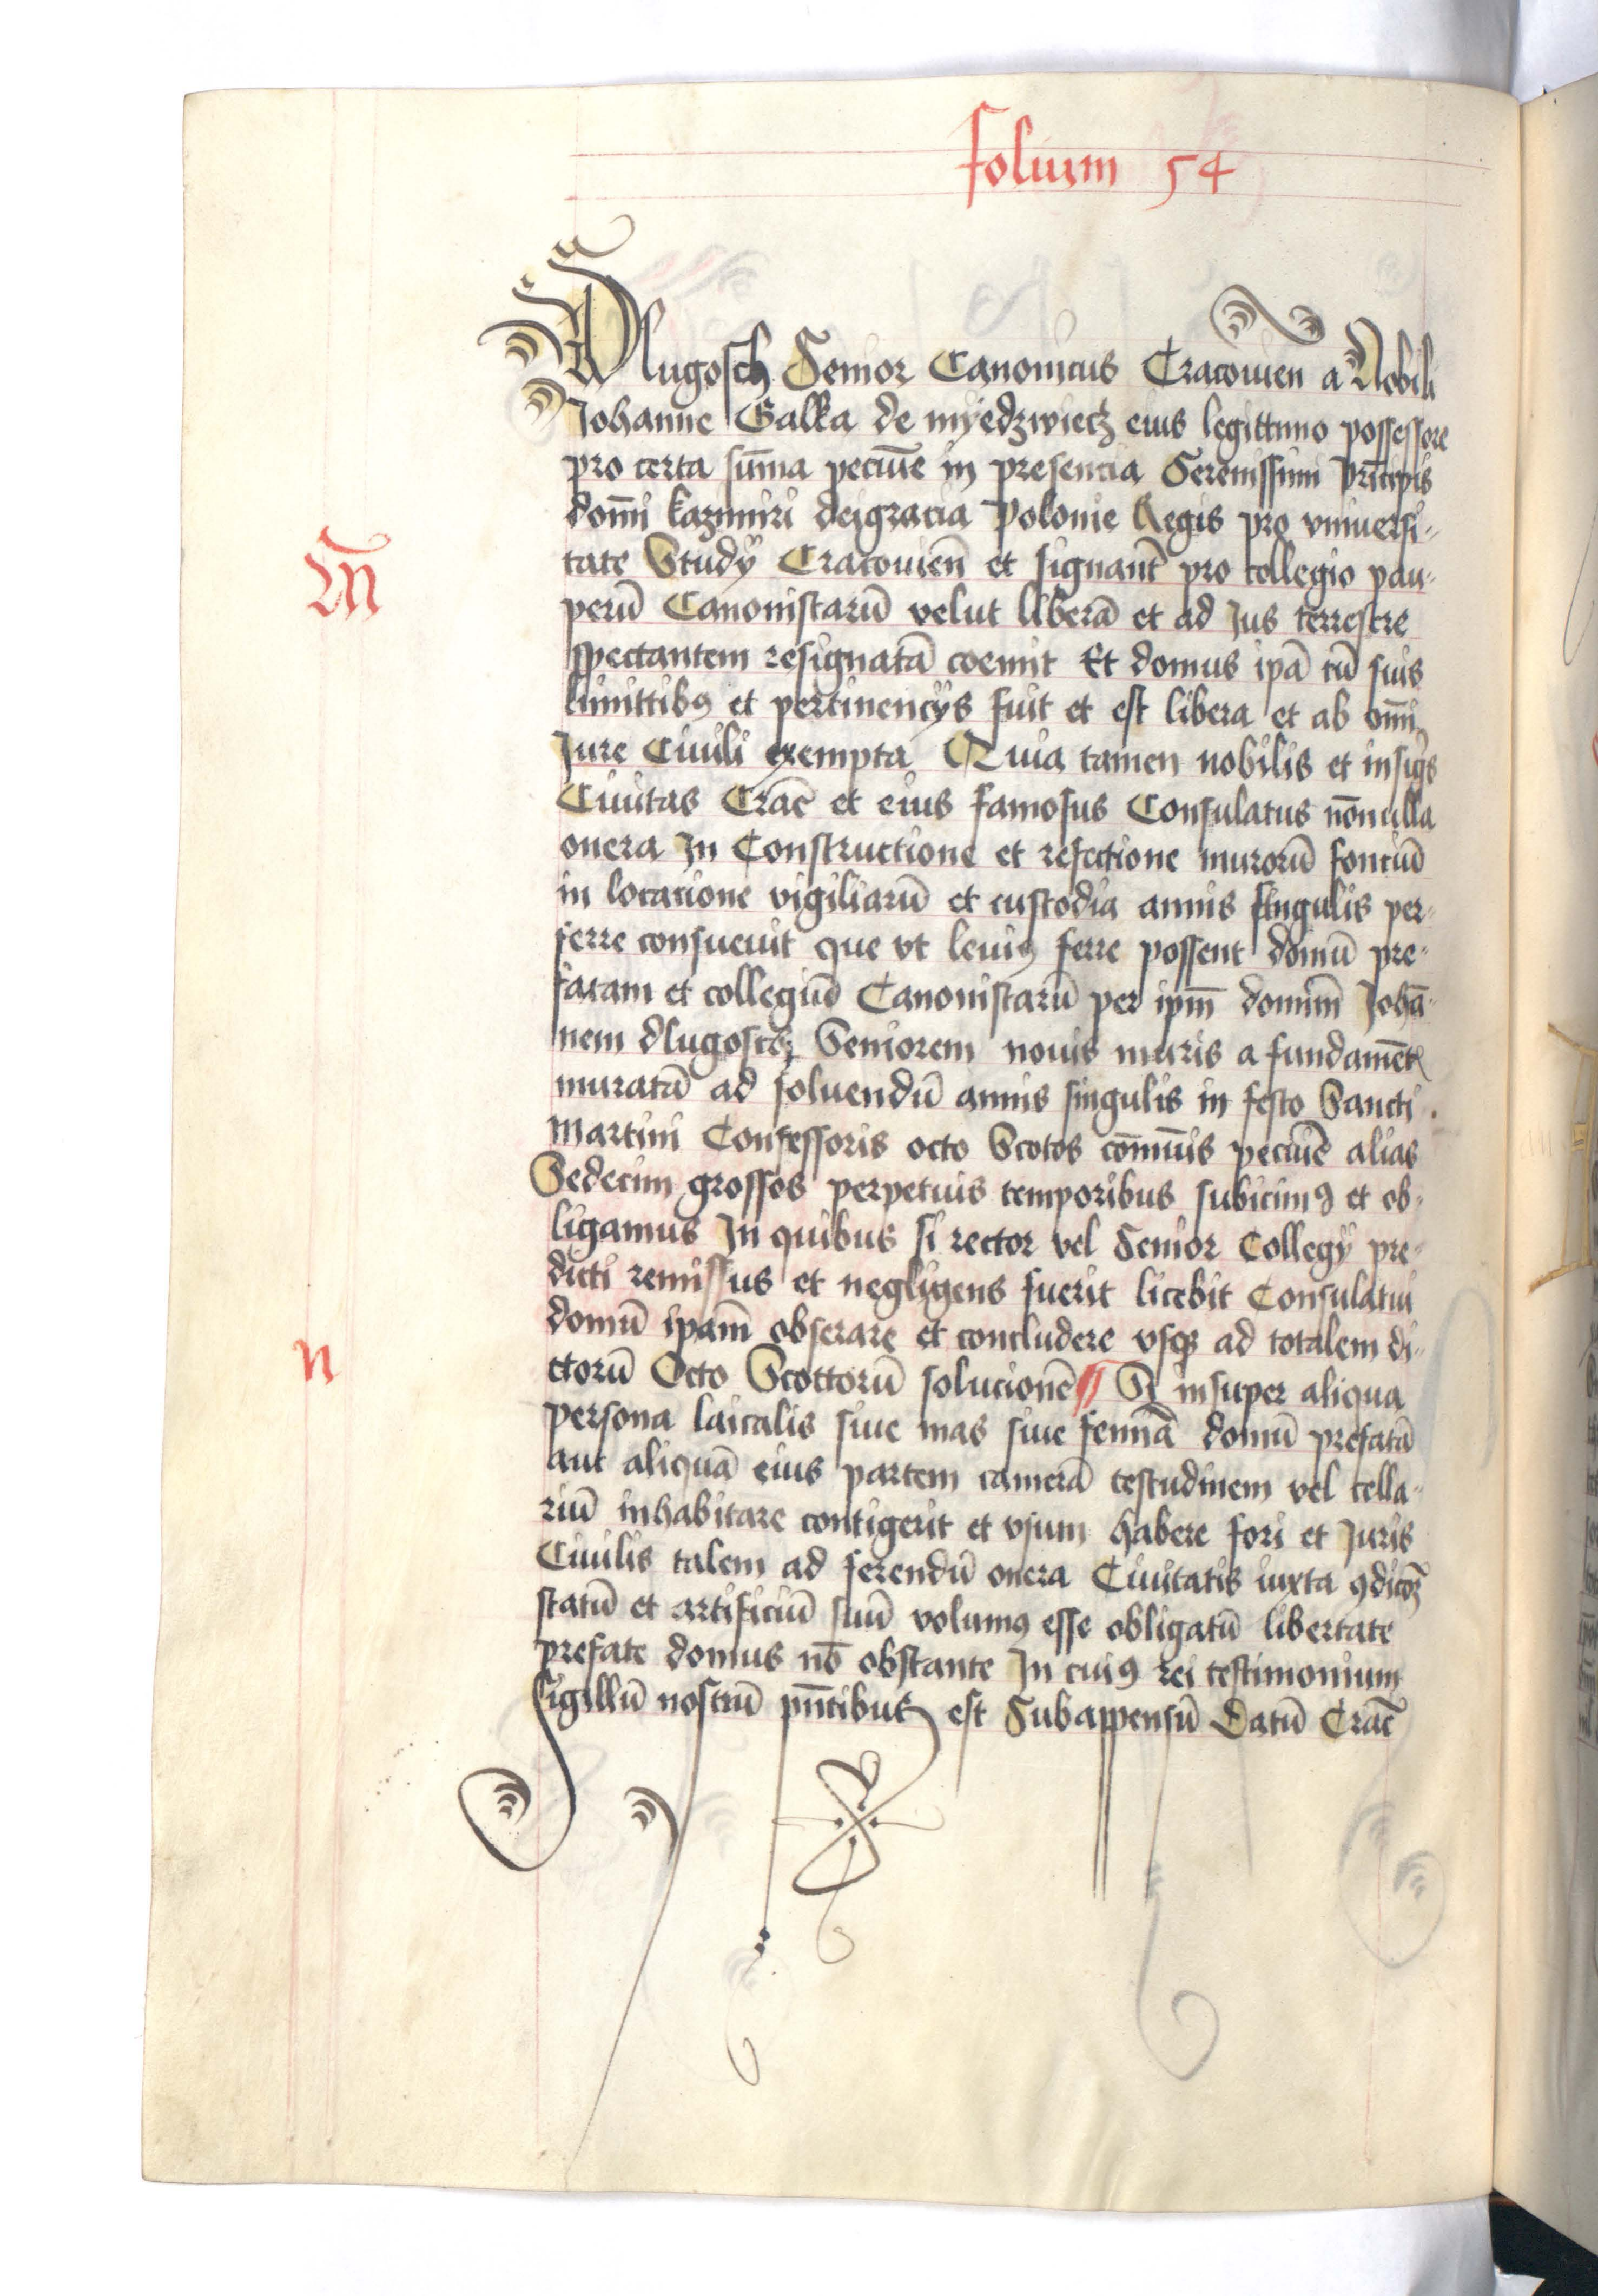 folium 54
Dlugosch Senior Canonicus Cracouien a Nobili
Johanne Galka de myedzwiecz eius legittimo possessore
pro certa sum̄a pecunīe in presencia Serenissimi principis
domī kazimiri deigracia Polonie Regis pro vniuersi-
M
tate Studÿ Cracouien̄ et signant̄ pro collegio pau-
perū Canonistarū velut liberā et ad Jus terrestre
spectantem resignatā coemit Et domus ipā cū suis
limittibꝫ et pertinencÿs fuit et est libera et ab om̄i
Jure Ciuili exempta Quia tamen nobilis et insigs
Ciuitas Crac̄ et eius famosus Consulatus nōnulla
onera In Constructione et refectione murorū fonciū
in locacione vigiliarū et custodia annis singulis per-
ferre consueuit que vt leuiꝯ ferre possent domū pre-
fatam et collegiū Canonistarū per ipm̄ domin̄ Johā-
nem dlugoscz Seniorem nouis muris a fundamēt
muratā ad soluendū annis singulis in festo Sancti
Martini Confessoris octo Scotos cōmūis pecuīe alias
Sedecim grossos perpetuis temporibus subicimꝯ et ob-
ligamus In quibus si rector vel Senior Collegÿ pre-
dicti remissus et negligens fuerit licebit Consulatui
domū ipam̄ obserare et concludere vsqꝫ ad totalem di-
n
ctorū Octo Scottorū solucionē Si insuper aliqua
persona laicalis siue mas siue femīa domū prefatā
aut aliquā eius partem camerā testudinem vel cella-
riū inhabitare contigerit et vsum habere fori et Juris
Ciuilis talem ad ferendū onera Ciuitatis iuxta ꝯdicoꝫ
statū et artificiū suū volumꝯ esse obligatū libertate
prefate domus nō obstante In cuiꝯ rei testimonium
Sigillū nostrū pn̄tibus est Subappensū Datū Crac̄